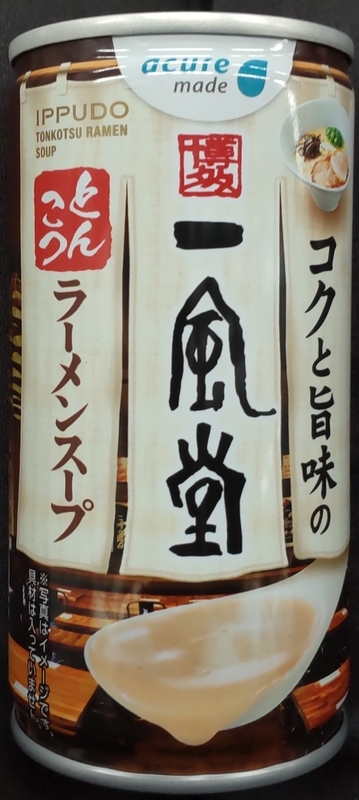 acure
made
IPPUDO
TONKOTSU RAMEN
SOUP
博多
一風堂
コクと旨味の
とんこつ
ラーメンスープ
※写真はイメージです
具材は入っていませ